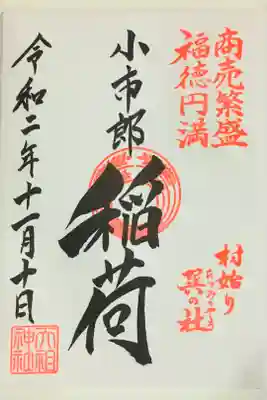 商売繁盛
福徳円満
村始り
巽の社
小市郎
稲荷
令和二年十一月十日